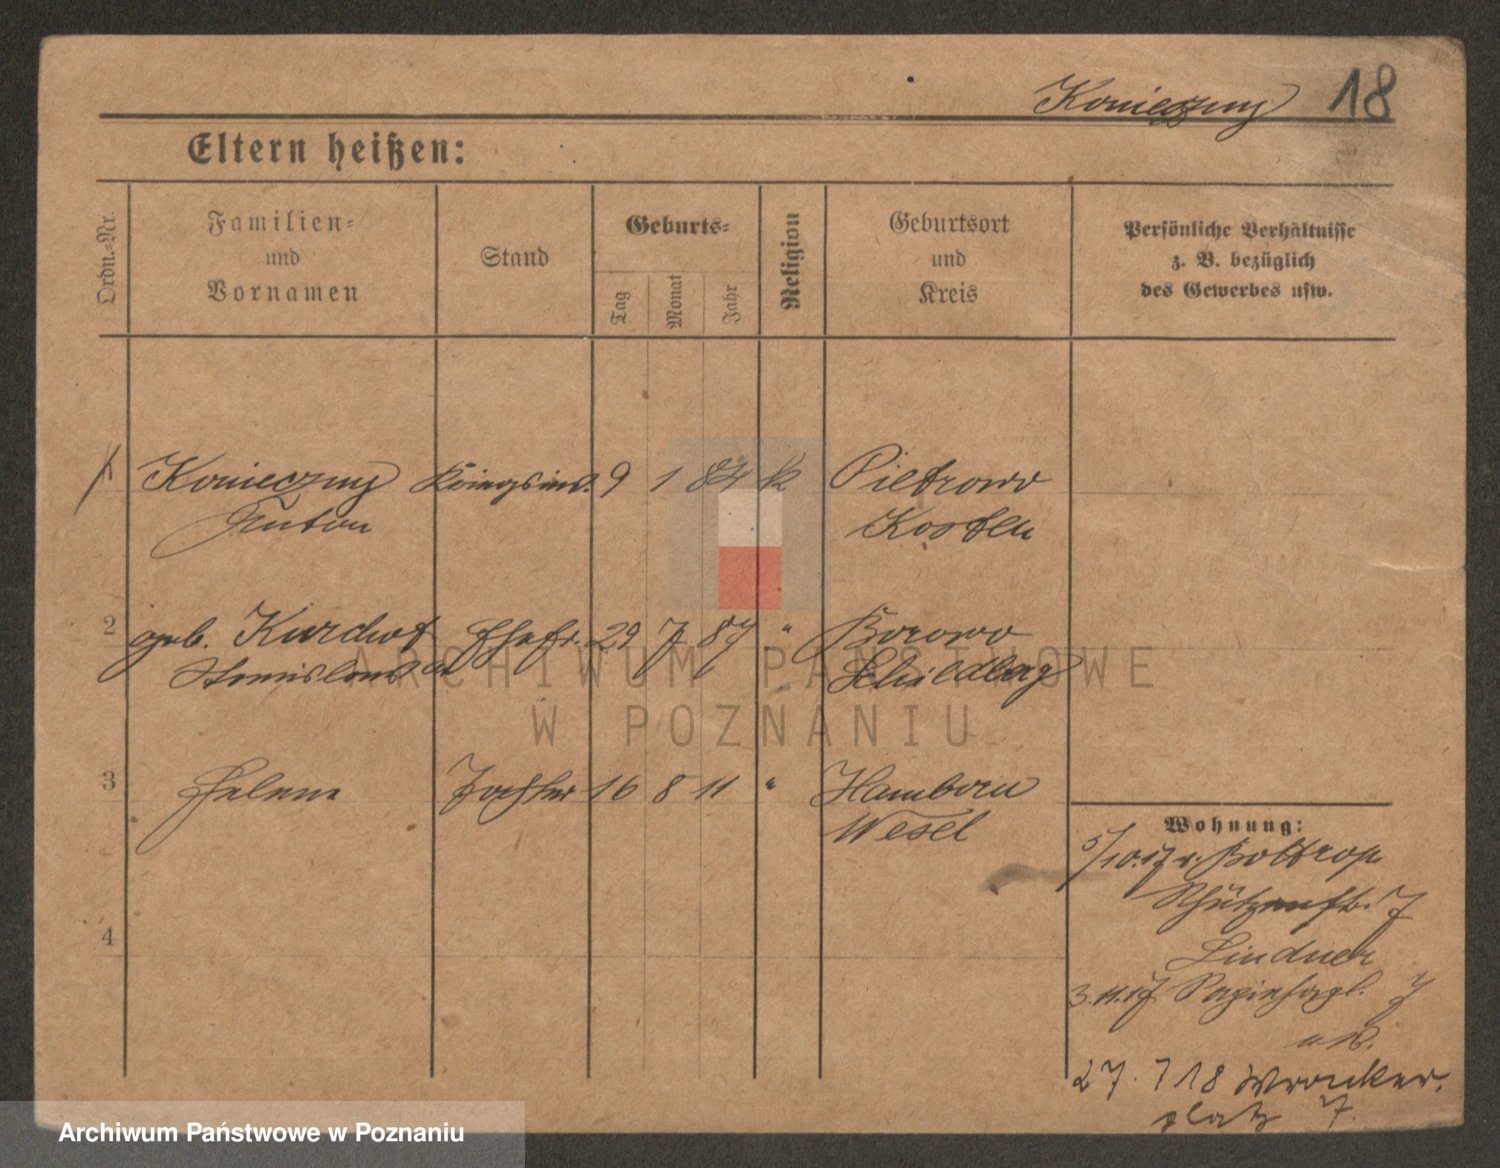 Konieczny 18
Eltern heißen:
Ordn.-Nr.
Familien-
und
Vornamen
Stand
Geburts-
Tag
Monat
Jahr
Religion
Geburtsort
und
Kreis
Persönliche Verhältnisse
z. B. bezüglich
des Gewerbes usw.
1 Konieczny 9 1 84 k Pietrowo
Anton Kosten
2 geb. Kurchot Ehefr. 29 7 87 " Borowo
Stanislawa Schildberg
3 Helene Tochter 16 8 11 " Hamborn
Wesel
4
Wohnung:
5/10.17 v. Bottrop
Schützenstr. 7
Lindner
3.11.17 7
27. 7 18 Wronker
platz 7.
ARCHIWUM PAŃSTWOWE
W POZNANIU
Archiwum Państwowe w Poznaniu